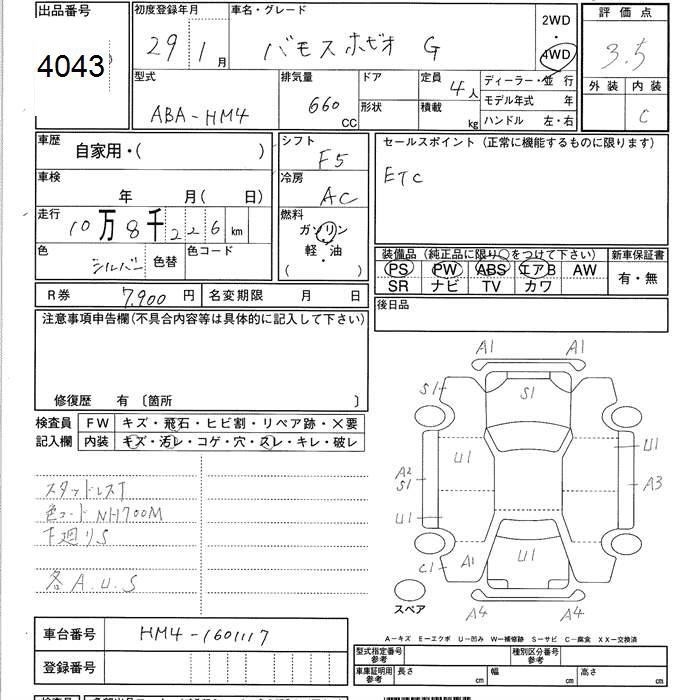 出品番号
4043
初度登録年月
29 1月
車名・グレード
バモスホビオ G
2WD
・
4WD
評価点
3.5
外装 内装
C
型式
ABA-HM4
排気量
660
CC
ドア
形状
定員
4人
積載
kg
ディーラー・並行
モデル年式 年
ハンドル 左・右
車歴
自家用・( )
シフト
F5
セールスポイント(正常に機能するものに限ります)
ETC
車検
年 月( 日)
冷房
AC
走行
10万8千226km
燃料
ガソリン
軽・油
( )
色
シルバー
色替
色コード
装備品(純正品に限り○をつけて下さい)
PS PW ABS エアB AW
SR ナビ TV カワ
新車保証書
有・無
R券
7,900円
名変期限 月 日
後日品
注意事項申告欄(不具合内容等は具体的に記入して下さい)
修復歴 有〔箇所 〕
検査員
記入欄
FW
キズ・飛石・ヒビ割・リペア跡・×要
内装
キズ・汚レ・コゲ・穴・スレ・キレ・破レ
スタッドレスT
色コードNH700M
下廻りS
各A.U.S
A1 A1
S1 S1
U1 U1
A2
S1
A3
U1
C1 A1 U1
A4 A4
スペア
A-キズ E-エクボ U-凹み W-補修跡 S-サビ C-腐食 XX-交換済
車台番号
HM4-1601117
登録番号
型式指定番号
参考
種別区分番号
参考
車庫証明用
参考
長さ cm
幅 cm
高さ cm